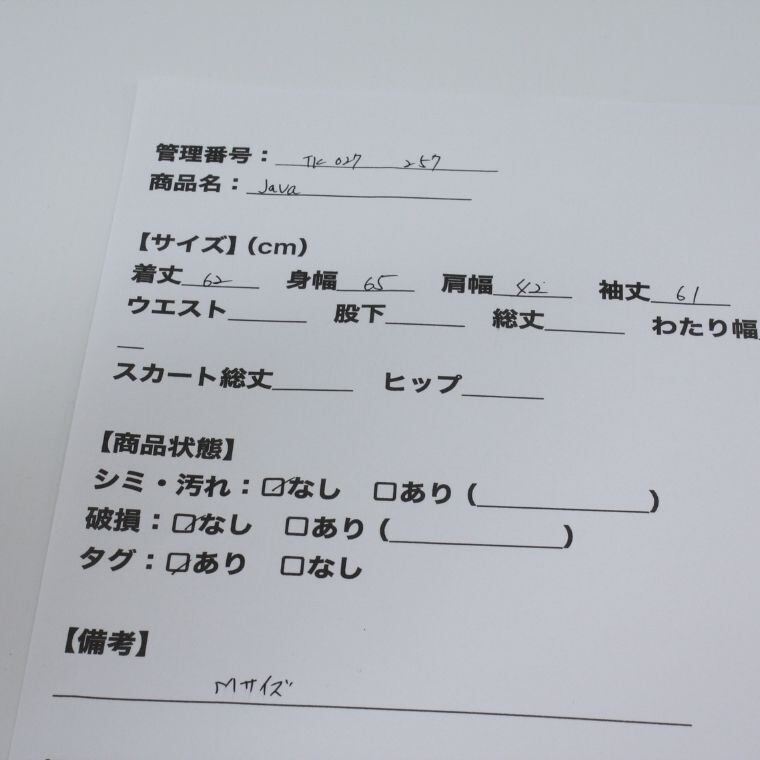 管理番号： TK 027 257
商品名： Java
【サイズ】(cm)
着丈 62 身幅 65 肩幅 42 袖丈 61
ウエスト 股下 総丈 わたり幅
スカート総丈 ヒップ
【商品状態】
シミ・汚れ：☑なし □あり ( )
破損：☑なし □あり ( )
タグ：☑あり □なし
【備考】
Mサイズ